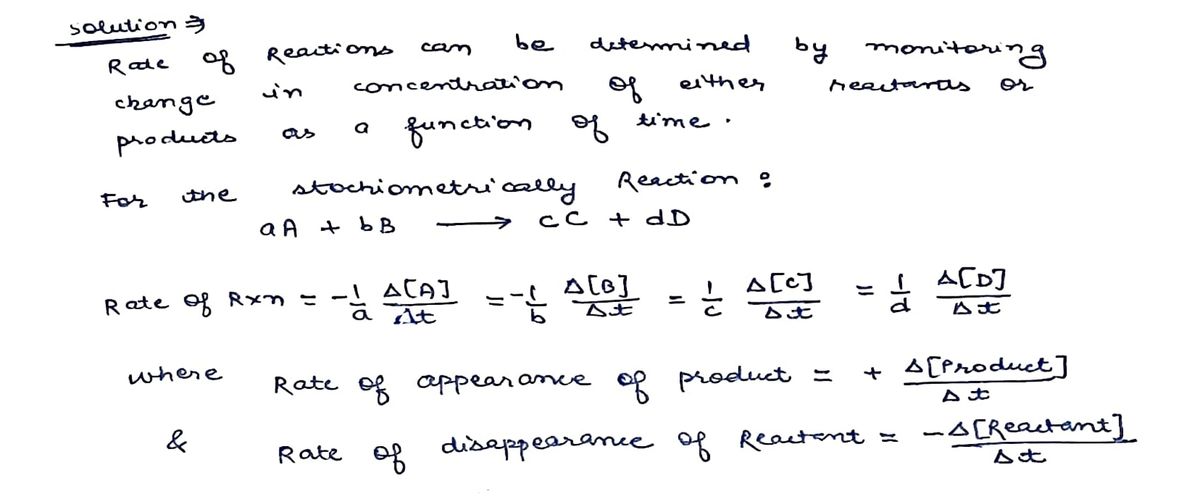 solution ⇒
Rate of Reactions can be determined by monitoring
change in concentration of either reactants or
products as a function of time.
For the stochiometrically Reaction :
aA + bB ⟶ cC + dD
Rate of Rxn = -1/a Δ[A]/Δt = -1/b Δ[B]/Δt = 1/c Δ[C]/Δt = 1/d Δ[D]/Δt
where Rate of appearance of product = + Δ[Product]/Δt
& Rate of disappearance of Reactant = -Δ[Reactant]/Δt